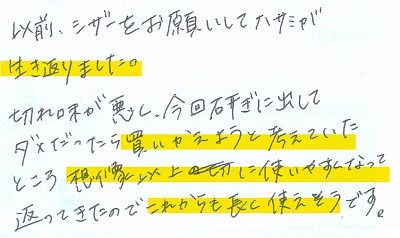 以前、シザーをお願いしてハサミが
生き返りました。
切れ味が悪く、今回研ぎに出して
ダメだったら買いかえようと考えていた
ところ 想像以上に使いやすくなって
返ってきたので これからも長く使えそうです。